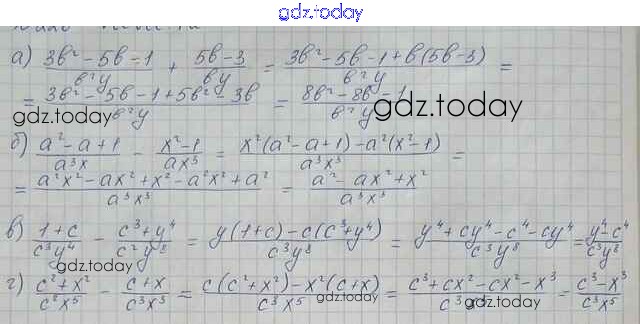 gdz.today
а) (3b² - 5b - 1)/(b²y) + (5b - 3)/(by) = (3b² - 5b - 1 + b(5b - 3))/(b²y) =
= (3b² - 5b - 1 + 5b² - 3b)/(b²y) = (8b² - 8b - 1)/(b²y)
gdz.today gdz.today
б) (a² - a + 1)/(a³x) - (x² - 1)/(ax³) = (x²(a² - a + 1) - a²(x² - 1))/(a³x³) =
= (a²x² - ax² + x² - a²x² + a²)/(a³x³) = (a² - ax² + x²)/(a³x³)
в) (1 + c)/(c³y⁴) - (c³ + y⁴)/(c²y⁸) = (y(1 + c) - c(c³ + y⁴))/(c³y⁸) = (y⁴ + cy⁴ - c⁴ - cy⁴)/(c³y⁸) = (y⁴ - c⁴)/(c³y⁸)
gdz.today gdz.today
г) (c² + x²)/(c²x⁵) - (c + x)/(c³x³) = (c(c² + x²) - x²(c + x))/(c³x⁵) = (c³ + cx² - cx² - x³)/(c³ = (c³ - x³)/(c³x⁵)
gdz.today